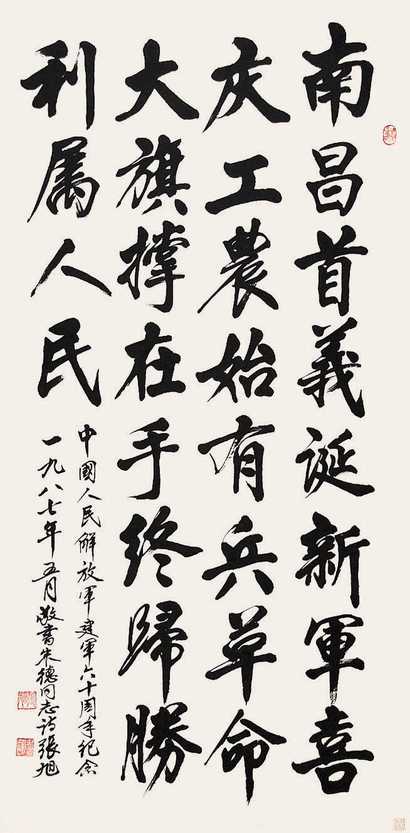 南昌首義诞新軍喜
庆工農始有兵革命
大旗撑在手终歸勝
利属人民
中國人民解放軍建軍六十周年纪念
一九八七年五月敬書朱德同志诗張旭